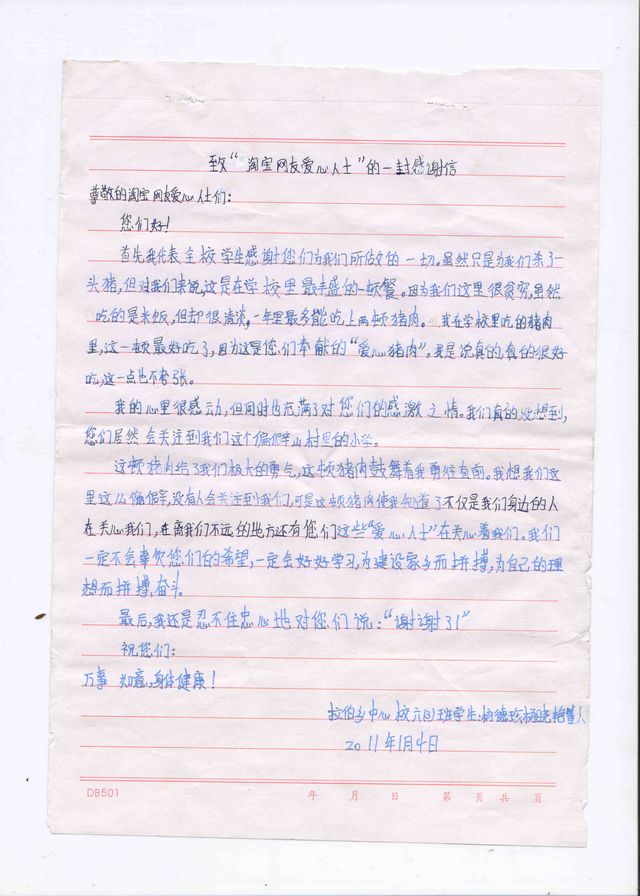 致“淘宝网友爱心人士”的一封感谢信
尊敬的淘宝网友爱心人仕们：
您们好！
首先我代表全校学生感谢您们为我们所做的一切。虽然只是为我们杀了一
头猪，但对我们来说，这是在学校里最丰盛的一顿餐。因为我们这里很贫穷，虽然
吃的是米饭，但却很清淡，一年里最多能吃上两顿猪肉。我在学校里吃的猪肉
里，这一顿最好吃了，因为这是您们奉献的“爱心猪肉”。我是说真的，真的很好
吃，这一点也不夸张。
我的心里很感动，但同时也充满了对您们的感激之情。我们真的没想到，
您们居然会关注到我们这个偏僻山村里的小学。
这顿猪肉给了我们极大的勇气，这顿猪肉鼓舞着我勇往直前。我想我们这
里这么偏僻，没有人会关注到我们，可是这顿猪肉使我知道了不仅是我们身边的人
在关心我们，在离我们不远的地方还有您们这些“爱心人士”在关心着我们。我们
一定不会辜负您们的希望，一定会好好学习，为建设家乡而拼搏，为自己的理
想而拼搏、奋斗。
最后，我还是忍不住忠心地对您们说：“谢谢了！”
祝您们：
万事如意，身体健康！
拉伯乡中心校六(1)班学生：杨德珍
2011年1月4日
DB501 年 月 日 第 页 共 页